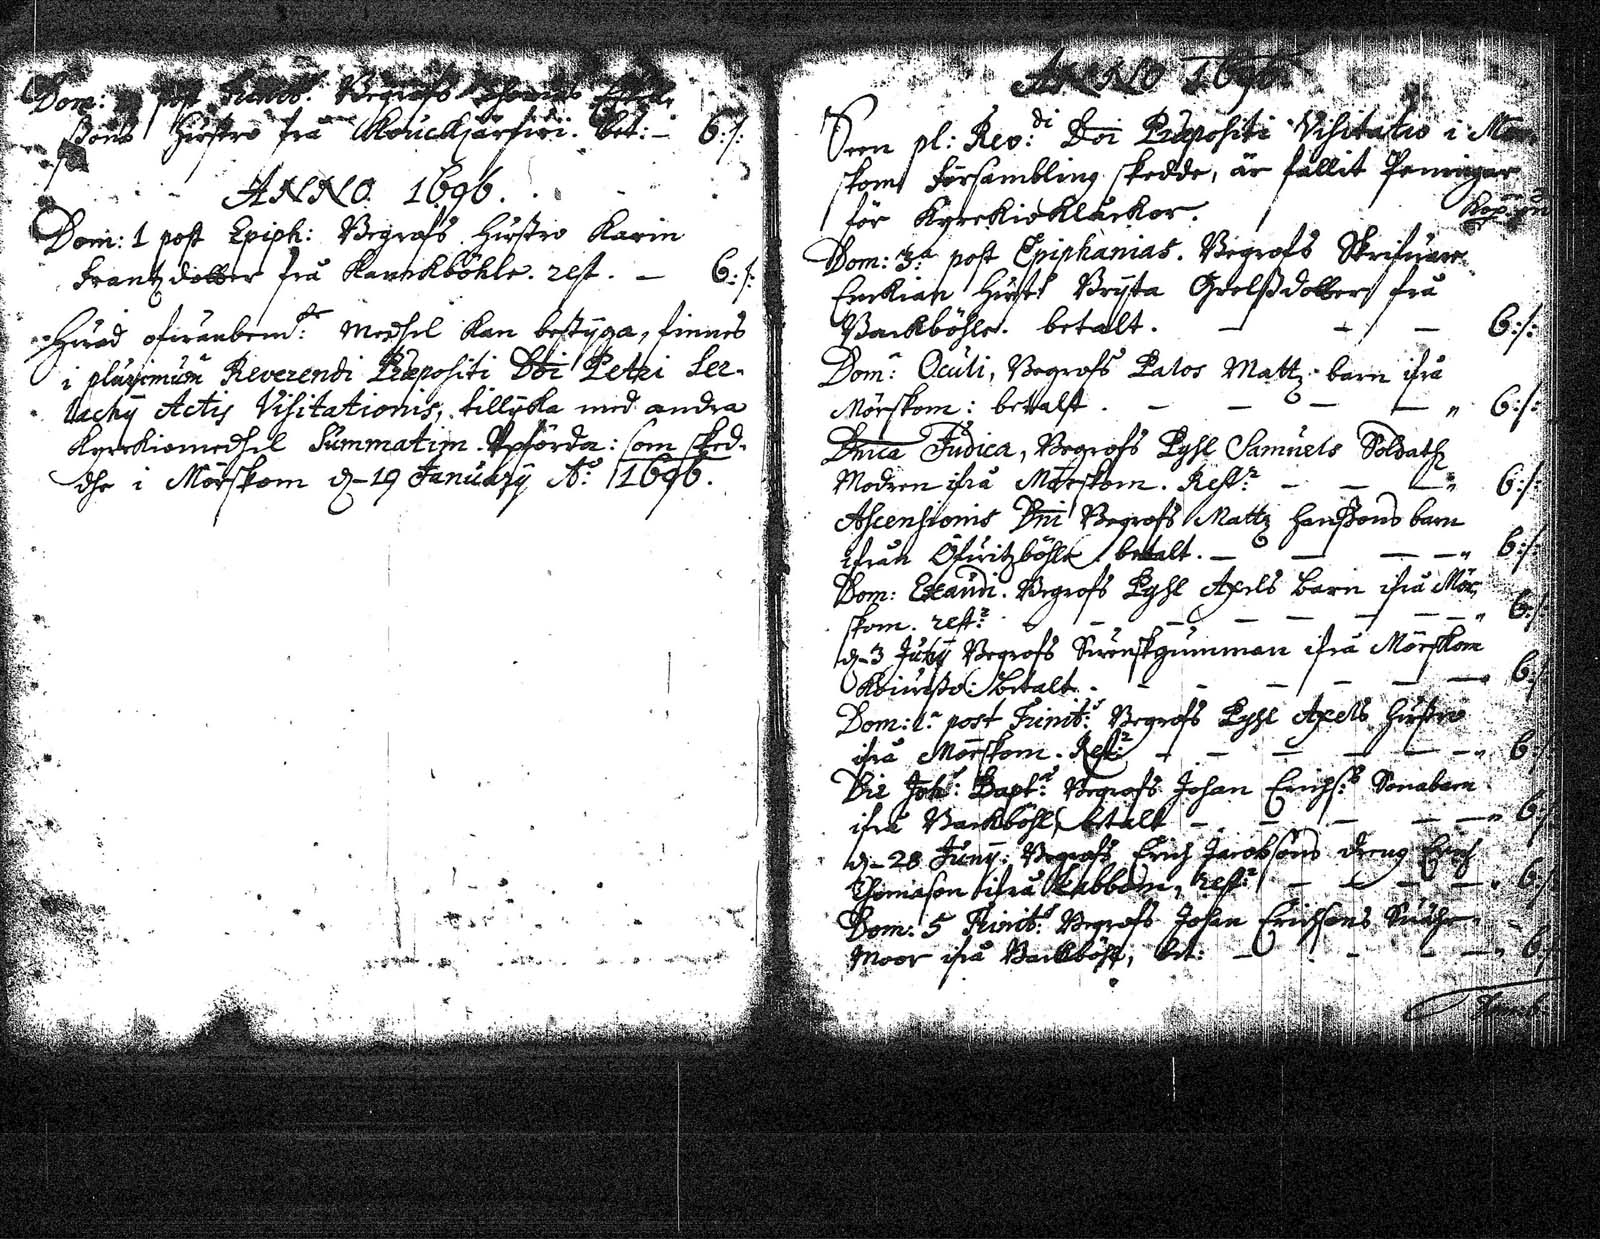 Dom: post Trinit: Begrofs Thomas
sons hustro frå Kouckjärfwi. bet: – 6:/:
ANNO. 1696.
Dom: 1 post Epiph: Begrofs hustro Karin
Frantzdotter frå Kanckböhle. rest. – 6:/:
Hwad ofwanbem:te medhel kan bestyga, finnes
i plurimum Reverendi Præpositi Dni Petri Ser-
lachij Actis Visitationis, tillijka med andra
Kyrkiomedhel Summatim opförda: som sked-
dhe i Mörskom d. 19 January Ao: 1696.
ANNO 1696.
Seen pl: Rev:di Dni Præpositi Visitatio i Mör
skom Försambling skedde, är fallit Penningar
för Kyrkioklåckor.
Dom: 3:a post Epiphanias. Begrofs
hust: Brijta dotter frå
Backböhle. betalt. – – – 6:/:
Dom: Oculi, Begrofs Palos Mattz barn ifrå
Mörskom: betalt. – – – – " 6:/:
Dnica Judica, Begrofs Pyhl Samuels Soldatz
Modren ifrå Mörskom. Rest: – – – " 6:/:
Ascensionis Dni Begrofs Mattz Hanssons barn
ifrån Öfwitzböhle betalt. – – – – " 6:/:
Dom: Exaudi. Begrofs Pyhl Axels barn ifrå Mör-
skom. rest: – – – – – – " 6:/:
d. 3 Juny Begrofs Swenskgumman ifrå Mörskom
betalt. – – – – – " 6:/:
Dom: 1.a post Trinit: Begrofs Pyhl Axels hustro
ifrå Mörskom. Rest: – – – – – " 6:/:
Die Joh: Bapt: Begrofs Johan Erichs: Sonabarn
ifrå Backböhle, betalt – – – – – " 6:/:
d. 28 Juny: Begrofs Erich Jacobsons dreng Erich
Thomason ifrå Labbom, rest: – – – – " 6:/:
Dom: 5 Trinit: Begrofs Johan Erichsons Swähr-
Moor ifrå Backböhle, bet: – – – – – " 6:/: